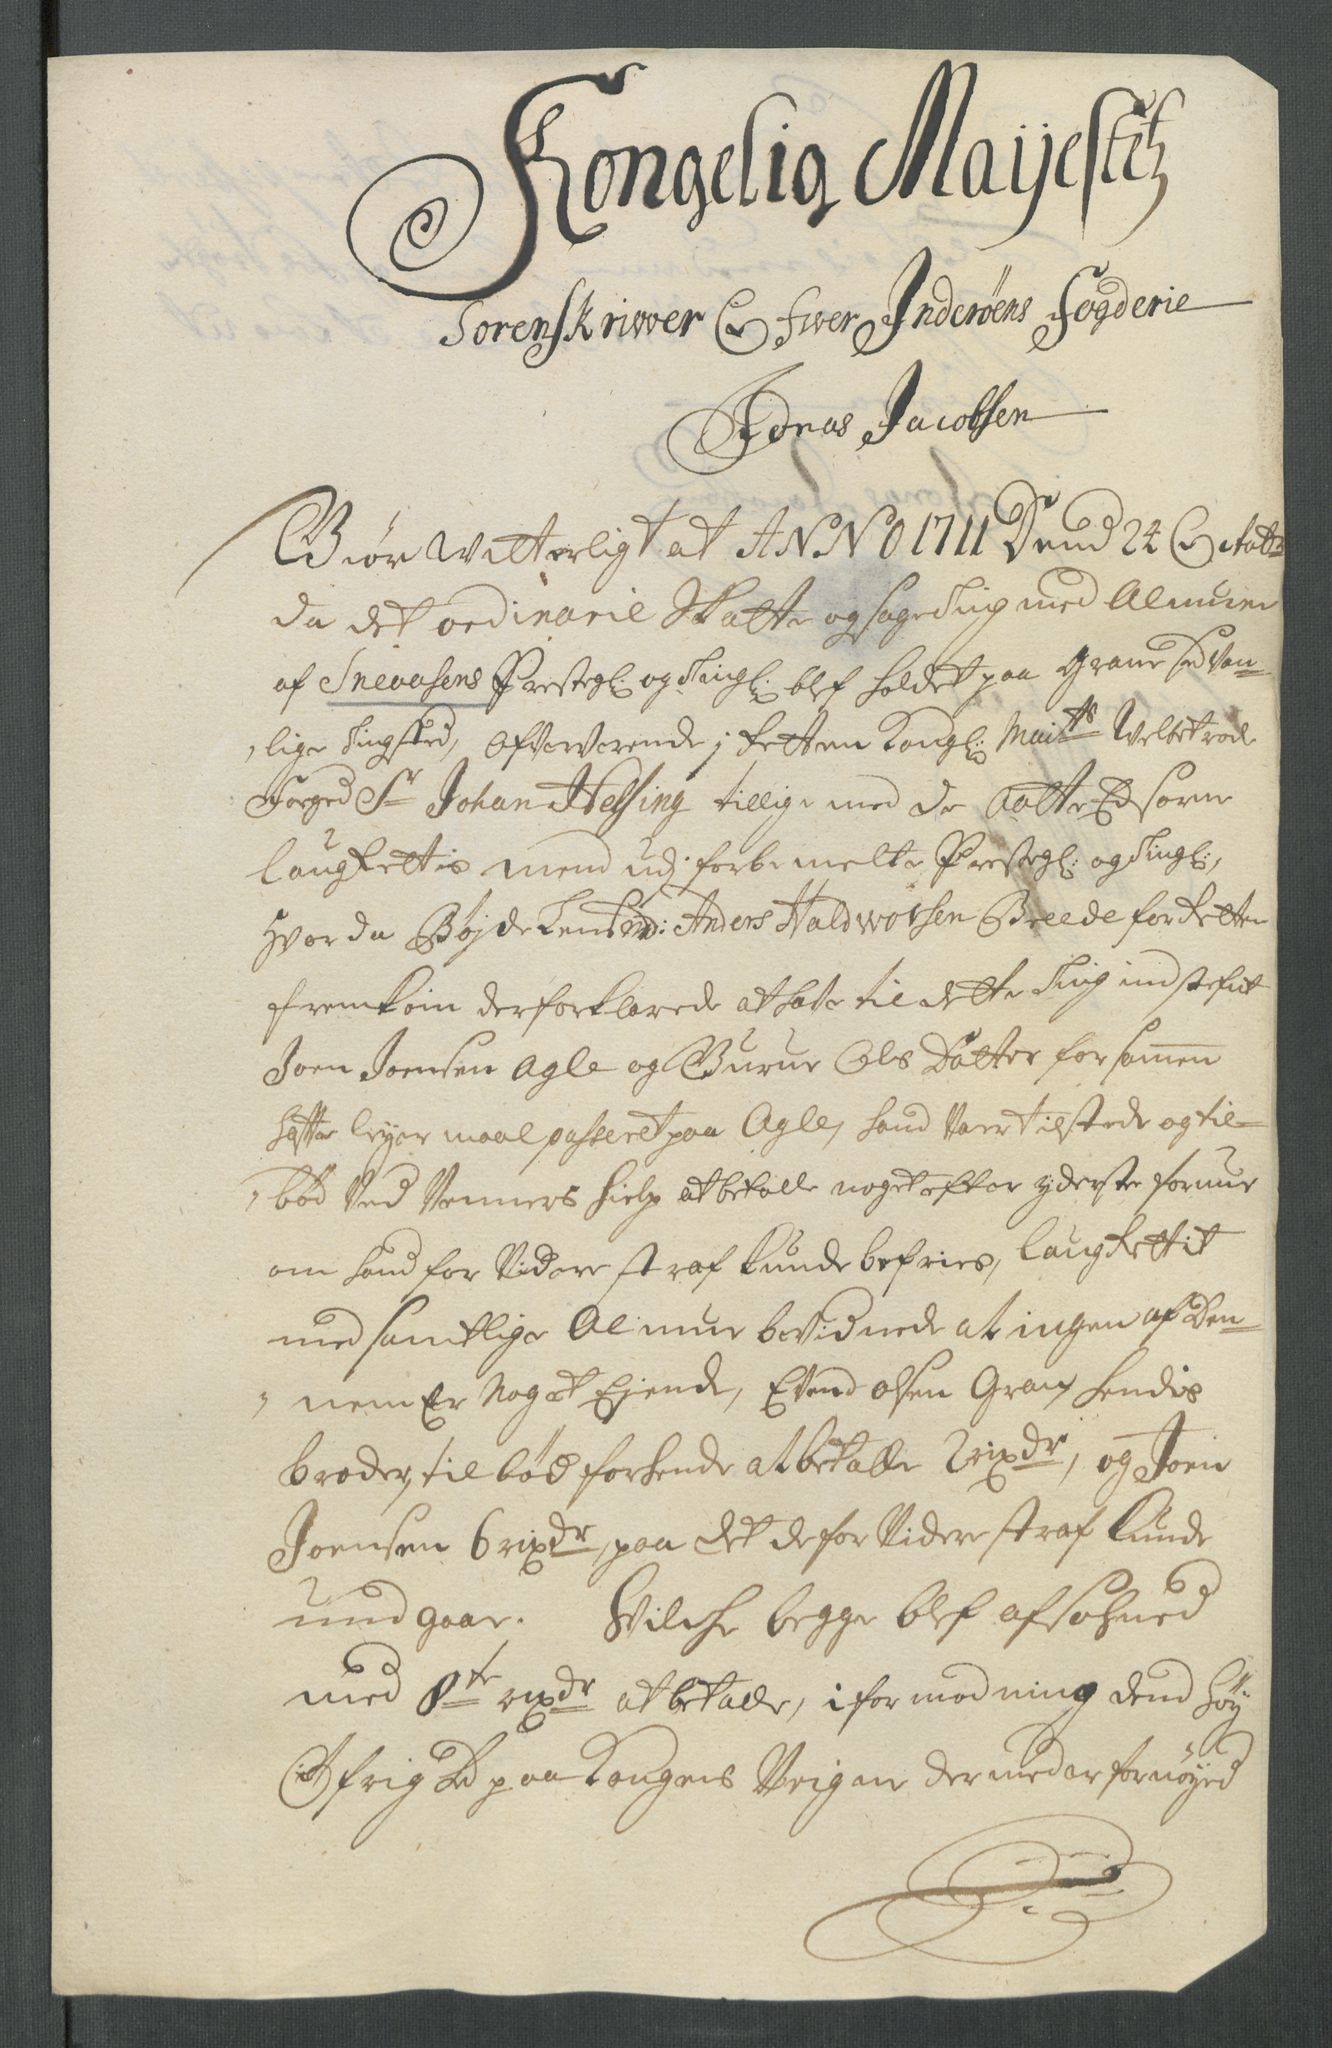 Kongelig Maÿestetz
Sorenskriwer Ofwer Inderøens Fogderie
Jonas Jacobsen
Giør witterligt at ANNO 1711 Dend 24 Octob:
da det ordinarie Skatte og sageting med Almuen
af Sneaasens Prestegl: og tingl: blef holdet paa Grane sædvan-
lige tingsted, Ofverværende i Retten Kongl: Maits Welbetrode
Foeged Sr Johan Helsing tillige med de Aatte Edsorne
laugRettis mend udj forbemelte Prestegl: og tingl:,
Hvor da Bøjde Lensmd: Anders Haldworsen Breede for Retten
fremkom der forklarede at have til dette ting ind stefnt
Joen Joensen Agle og Gurue Ols Datter for sammen
hafte leyermaal passeret paa Agle, hand Var tilstede og til-
bød Ved Venners hielp at betalle noget efter yderste formue
om hand for Videre straf kunde befries, laugRettit
med samtlige Almue bevidnede at ingen af Den-
nem Er Noget Ejende, Evend olsen Gran hendis
broder, til bød for hende at betalle 2 rixdr, og Joen
Joensen 6 rixdr, paa det de for Videre straf kunde
undgaae. Hvilche begge blef afsohned
med 8te rixdr at betalle, i formodning dend høy
Øfrighed paa Kongens Veigne dermed er fornøyed